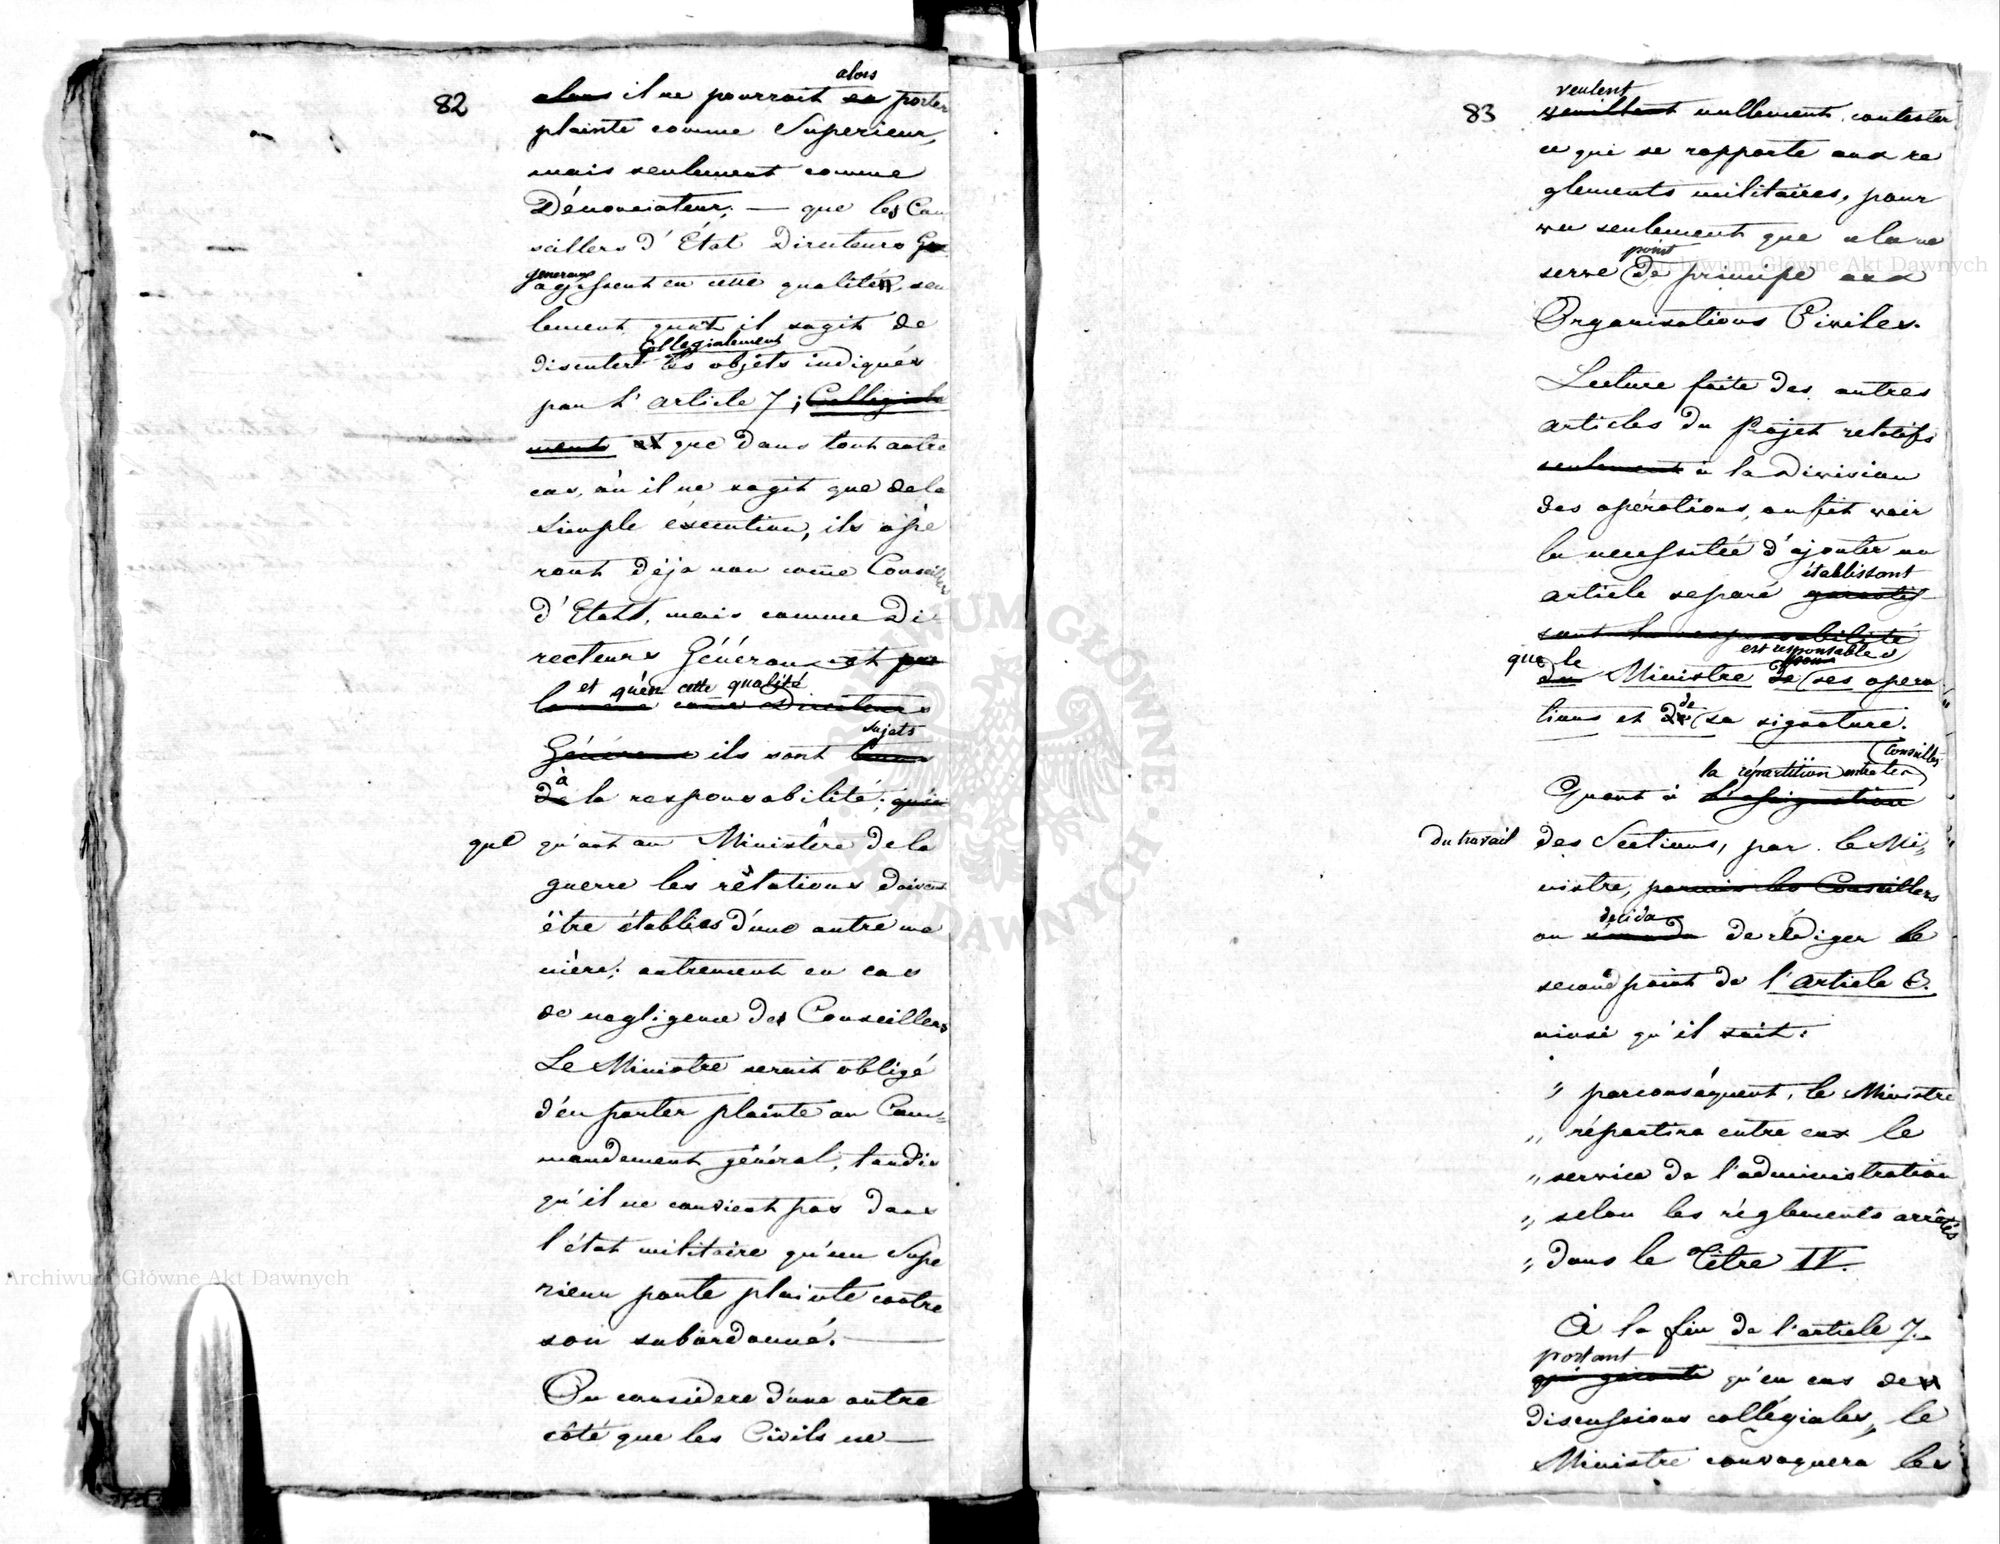 82
alors
alors il ne pourrait en porter
plainte comme Superieur,
mais seulement comme
Dénonciateur; — que les Con
seillers d'État Directeurs Ge
generaux
agissent en cette qualité, seu
lement quant il sagit de
Collegialement
discuter les objets indiqués
par l'article 7; Collegiale
ment et que dans tout autre
cas, où il ne sagit que de la
simple éxecution, ils opé
ront déja non come Conseillers
d'Etat, mais comme Di-
recteurs Généraux et par
et qu'en cette qualité
la même come Directeurs
sujets
Généraux ils sont
à
de la responsabilité;
que qu'ant au Ministère de la
guerre les rélations doivent
être établies d'une autre ma
nière; autrement en cas
de negligence des Conseillers
Le Ministre serait obligé
d'en porter plainte au Com-
mandement général, tandis
qu'il ne convient pas dans
l'état militaire qu'un Supe
rieur porte plainte contre
son subordonné. —
On considere d'une autre
côté que les Civils ne —
83
veulent
veuillent nullement contester
ce qui se rapporte aux re
glements militaires, pour
vu seulement que cela ne
point
serve de principe aux
Organisations Civiles.
Lecture faite des autres
articles du Projet relatifs
seulement à la Division
des opérations, on fit voir
la necessitée d'ajouter un
établissant
article separé garantis-
sant la responsabilité
que le est responsable
du Ministre de ses opera
tions et de sa signature.
Conseillers
la répartition entre les
Quant à l'assignation
du travail des Sections, par le Mi-
nistre, parmis les Conseillers
decida
on de rédiger le
second point de l'article 6.
ainsi qu'il suit:
" parconséquent, le Ministre
" répartira entre eux le
" service de l'administration
" selon les réglements arrêtés
" dans le Titre IV.
À la fin de l'article 7.
portant
qui garantit qu'en cas de
discussions collégiales, le
Ministre convoquera les
Archiwum Główne Akt Dawnych
Archiwum Główne Akt Dawnych
ARCHIWUM GŁÓWNE AKT DAWNYCH